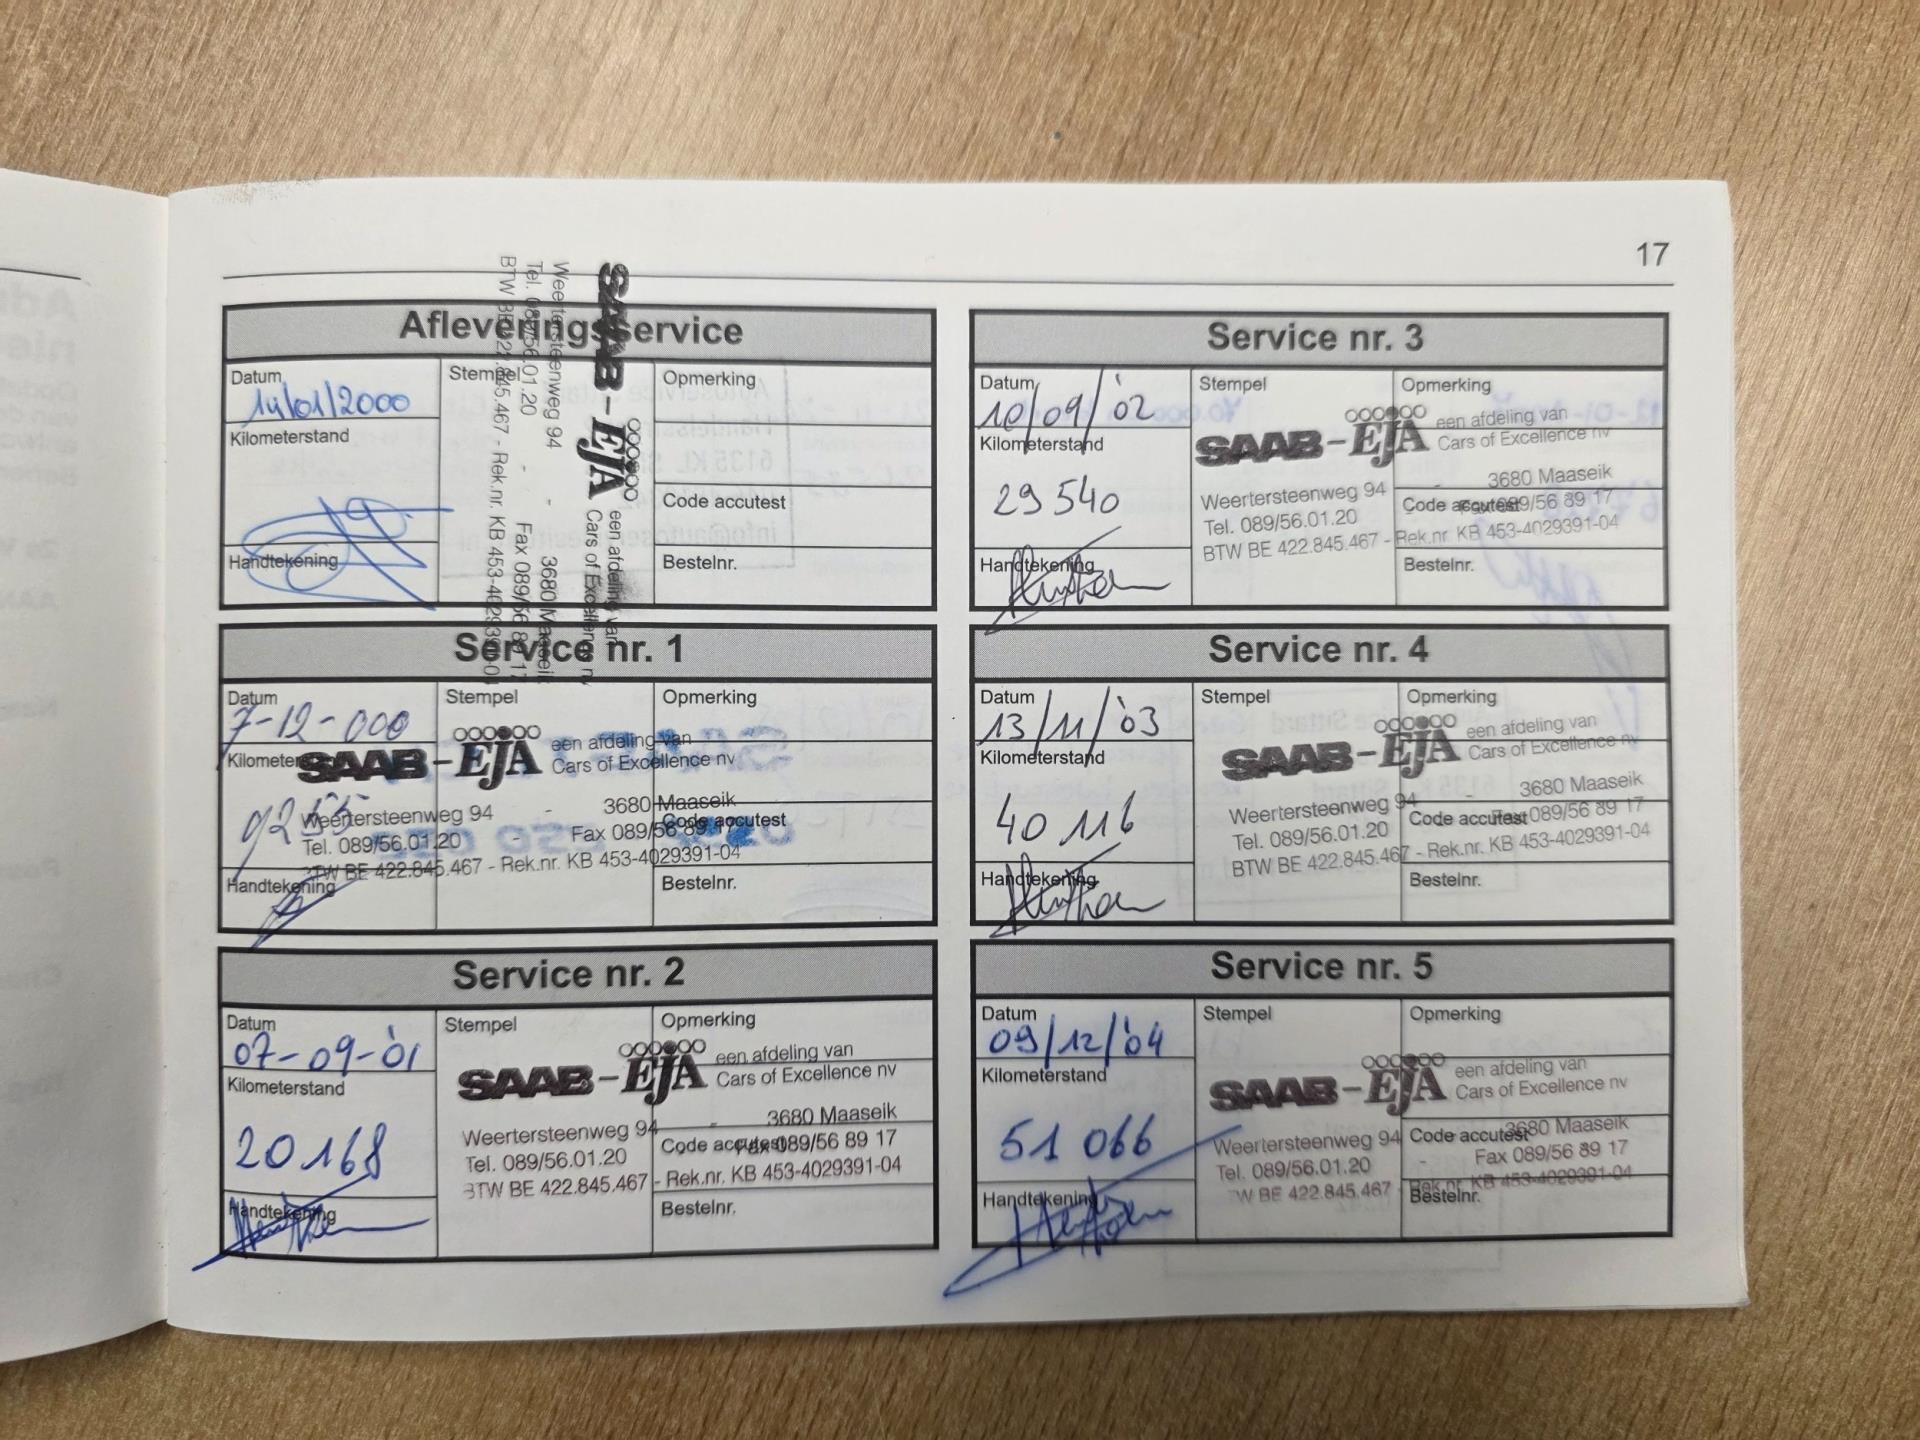 17
Afleveringsservice
Datum
14/01/2000
Kilometerstand
Handtekening
Stempel
SAAB-EJA een afdeling van
Cars of Excellence nv
Weertersteenweg 94 - 3680 Maaseik
Tel. 089/56.01.20 - Fax 089/56 89 17
BTW BE 422.845.467 - Rek.nr. KB 453-4029391-04
Opmerking
Code accutest
Bestelnr.
Service nr. 1
Datum
7-12-000
Kilometerstand
9255
Handtekening
Stempel
SAAB-EJA een afdeling van
Cars of Excellence nv
Weertersteenweg 94 - 3680 Maaseik
Tel. 089/56.01.20 - Fax 089/56 89 17
BTW BE 422.845.467 - Rek.nr. KB 453-4029391-04
Opmerking
Code accutest
Bestelnr.
Service nr. 2
Datum
07-09-'01
Kilometerstand
20 168
Handtekening
Stempel
SAAB-EJA een afdeling van
Cars of Excellence nv
Weertersteenweg 94 - 3680 Maaseik
Tel. 089/56.01.20 Fax 089/56 89 17
BTW BE 422.845.467 - Rek.nr. KB 453-4029391-04
Opmerking
Code accutest
Bestelnr.
Service nr. 3
Datum
10/09/'02
Kilometerstand
29 540
Handtekening
Stempel
SAAB-EJA een afdeling van
Cars of Excellence nv
Weertersteenweg 94 - 3680 Maaseik
Tel. 089/56.01.20 Fax 089/56 89 17
BTW BE 422.845.467 - Rek.nr. KB 453-4029391-04
Opmerking
Code accutest
Bestelnr.
Service nr. 4
Datum
13/11/'03
Kilometerstand
40 116
Handtekening
Stempel
SAAB-EJA een afdeling van
Cars of Excellence nv
Weertersteenweg 94 - 3680 Maaseik
Tel. 089/56.01.20 Fax 089/56 89 17
BTW BE 422.845.467 - Rek.nr. KB 453-4029391-04
Opmerking
Code accutest
Bestelnr.
Service nr. 5
Datum
09/12/'04
Kilometerstand
51 066
Handtekening
Stempel
SAAB-EJA een afdeling van
Cars of Excellence nv
Weertersteenweg 94 3680 Maaseik
Tel. 089/56.01.20 - Fax 089/56 89 17
TW BE 422.845.467 - Rek.nr. KB 453-4029391-04
Opmerking
Code accutest
Bestelnr.